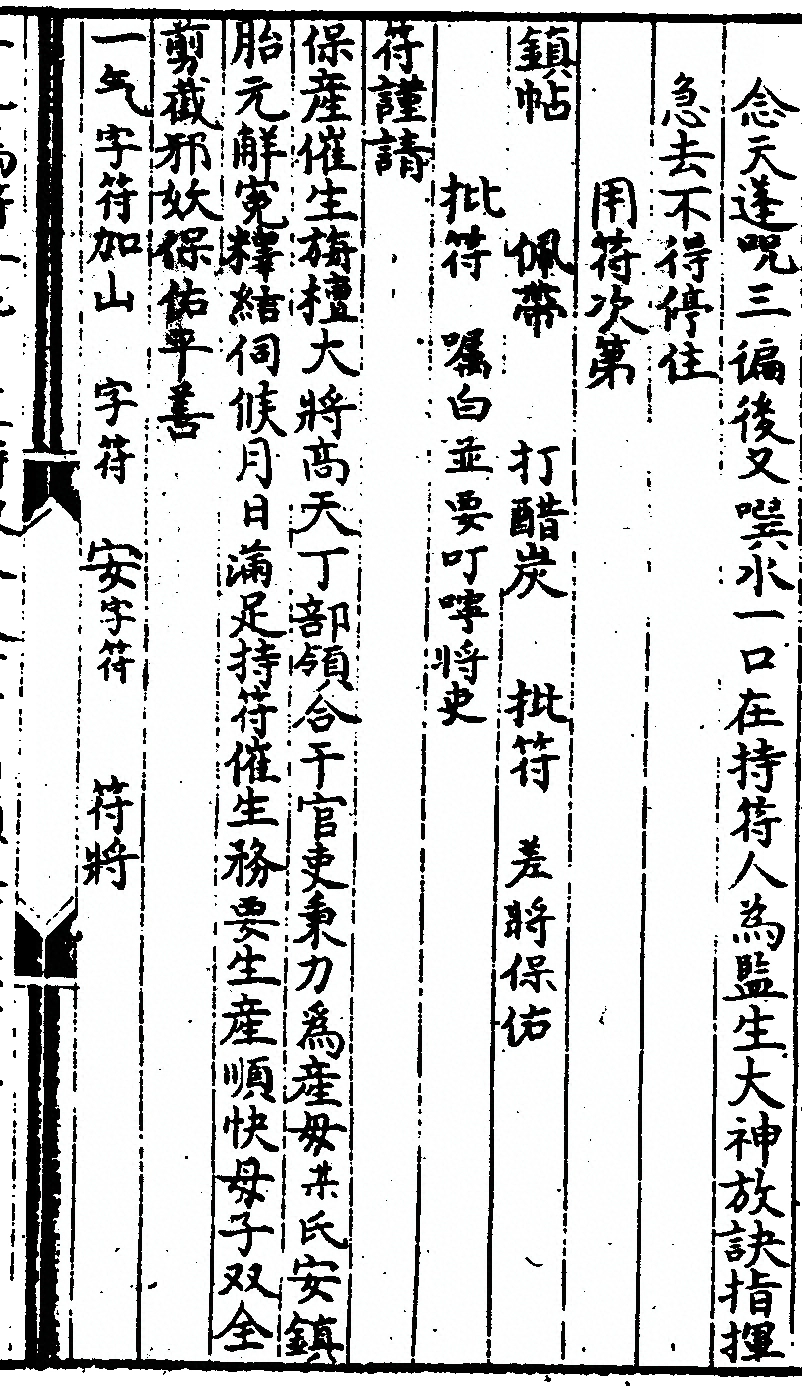 念天蓬呪三徧後又噀水一口在持符人為監生大神放訣指揮
急去不得停住
用符次第
鎮帖 佩帶 打醋炭 批符 差將保佑
批符 嘱白並要叮嚀将吏
符謹請
保產催生旃檀大將高天丁部領合干官吏秉力爲產母某氏安鎮
胎元解寃釋結伺候月日滿足持符催生務要生產順快母子双全
剪截邪妖保佑平善
一气字符加山 字符 安字符 符將